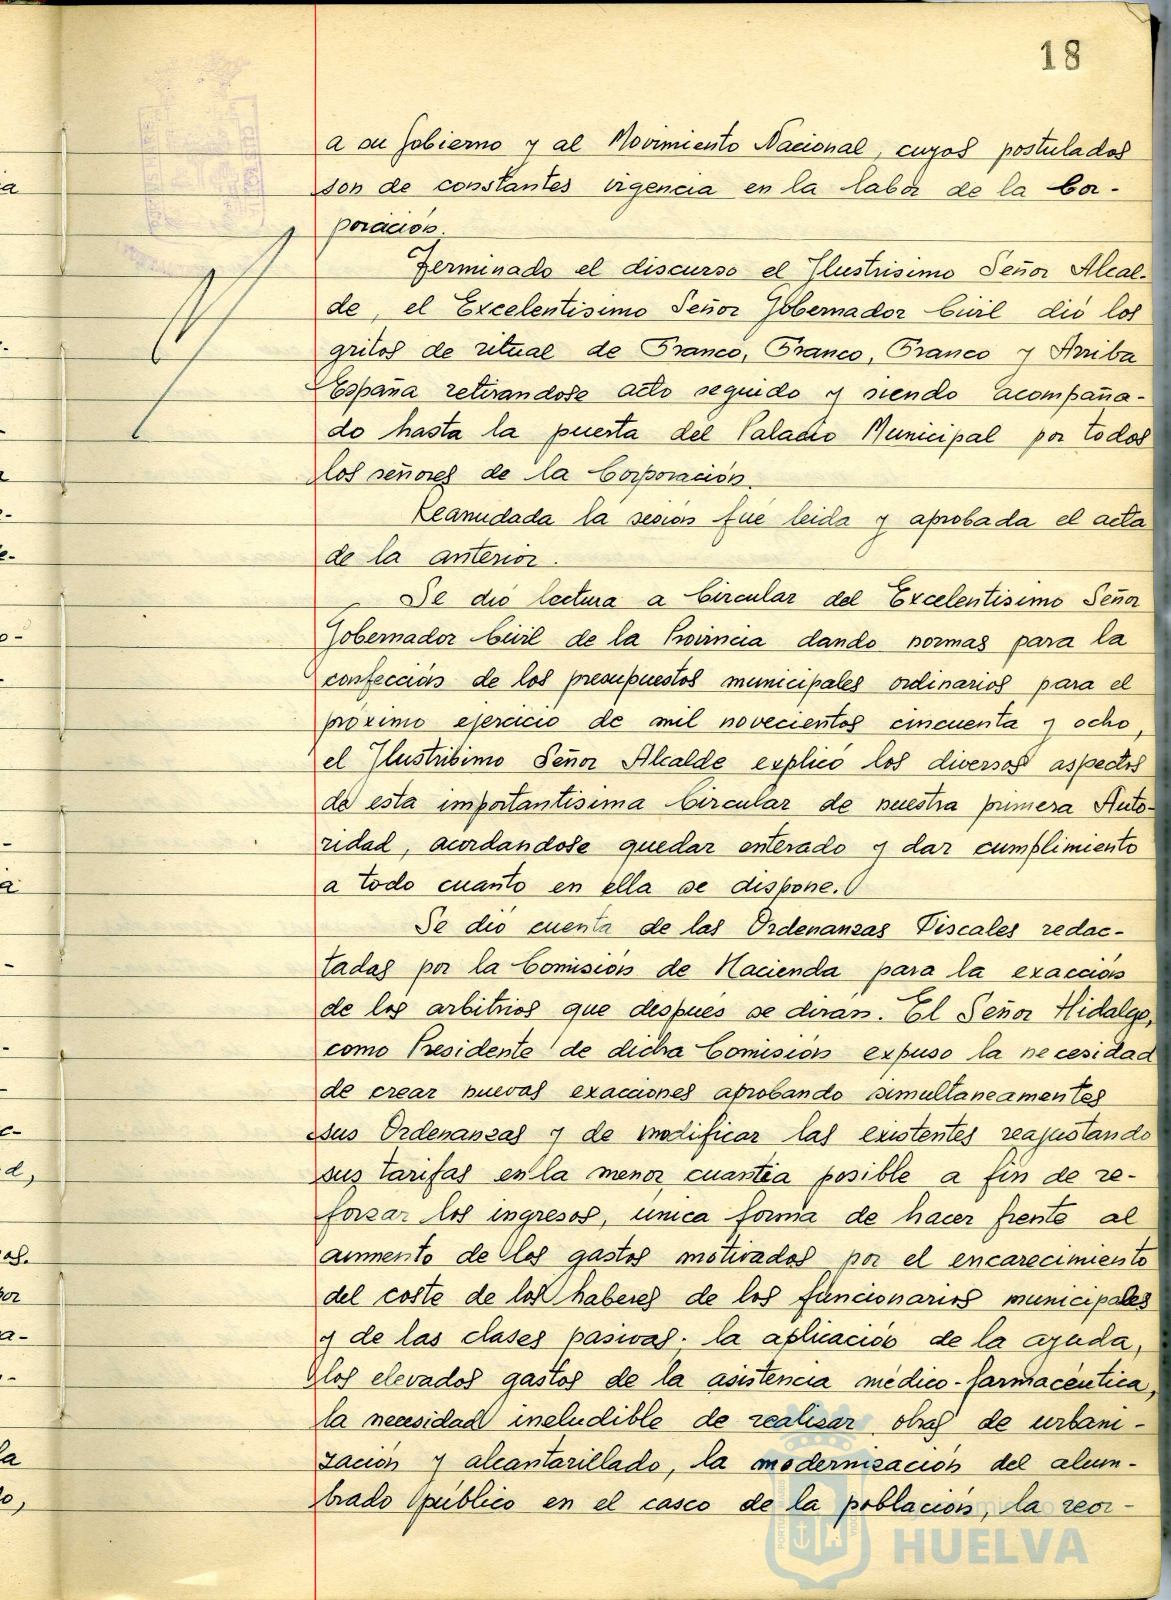 18
a su Gobierno y al Movimiento Nacional, cuyos postulados
son de constantes vigencia en la labor de la Cor-
poración.
Terminado el discurso el Ilustrisimo Señor Alcal-
de, el Excelentisimo Señor Gobernador Civil dió los
gritos de ritual de Franco, Franco, Franco y Arriba
España retirandose acto seguido y siendo acompaña-
do hasta la puerta del Palacio Municipal por todos
los señores de la Corporación.
Reanudada la sesión fué leida y aprobada el acta
de la anterior.
Se dió lectura a Circular del Excelentisimo Señor
Gobernador Civil de la Provincia dando normas para la
confección de los presupuestos municipales ordinarios para el
próximo ejercicio de mil novecientos cincuenta y ocho,
el Ilustrisimo Señor Alcalde explicó los diversos aspectos
de esta importantisima Circular de nuestra primera Auto-
ridad, acordandose quedar enterado y dar cumplimiento
a todo cuanto en ella se dispone.
Se dió cuenta de las Ordenanzas Fiscales redac-
tadas por la Comisión de Hacienda para la exacción
de los arbitrios que después se dirán. El Señor Hidalgo,
como Presidente de dicha Comisión expuso la necesidad
de crear nuevas exacciones aprobando simultaneamentes
sus Ordenanzas y de modificar las existentes reajustando
sus tarifas en la menor cuantia posible a fin de re-
forzar los ingresos, única forma de hacer frente al
aumento de los gastos motivados por el encarecimiento
del coste de los haberes de los funcionarios municipales
y de las clases pasivas, la aplicación de la ayuda,
los elevados gastos de la asistencia médico-farmacéutica,
la necesidad ineludible de realizar obras de urbani-
zación y alcantarillado, la modernización del alum-
brado público en el casco de la población, la reor-
HUELVA